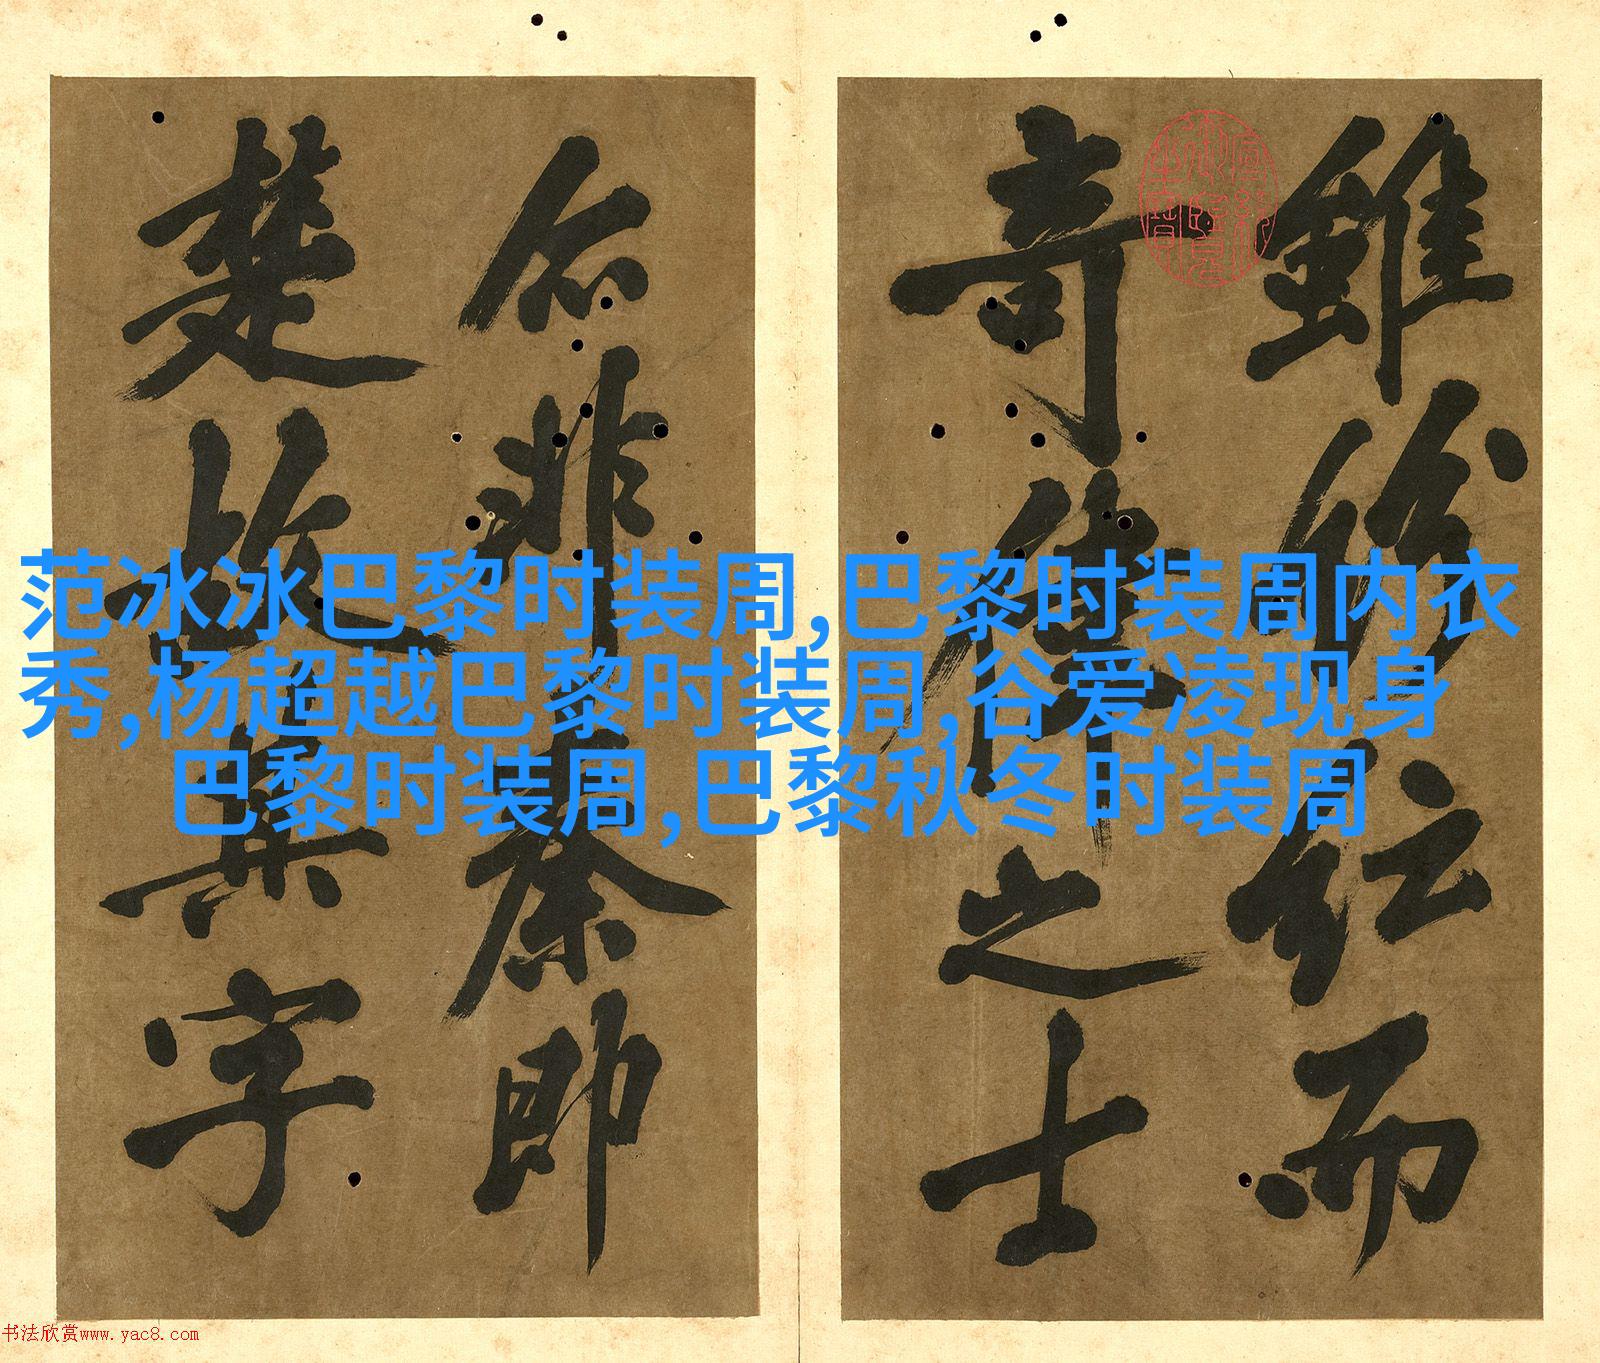 雖紛紜而
奇偉之士
非秦即
楚故其字
宣統御覽之寶
范冰冰巴黎时装周,巴黎时装周内衣
秀,杨超越巴黎时装周,谷爱凌现身
巴黎时装周,巴黎秋冬时装周
书法欣赏www.yac8.com